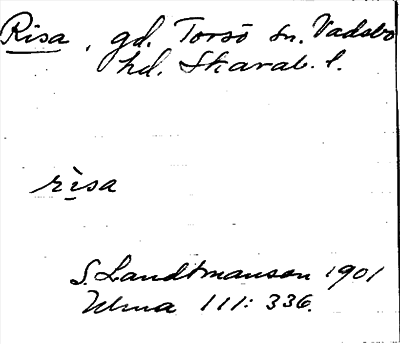 Risa, gd. Torsö sn. Vadsbo
hd. Skarab. l.
rìsa
S. Landtmanson 1901
Ulma 111: 336.